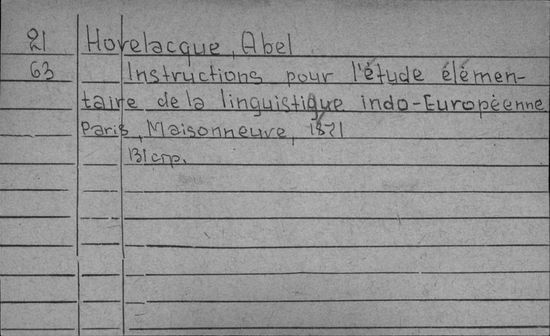 21 Hovelacque, Abel
63 Instructions pour l'étude élémen-
taire de la linguistique indo-Européenne
Paris, Maisonneuve, 1871
131 стр.